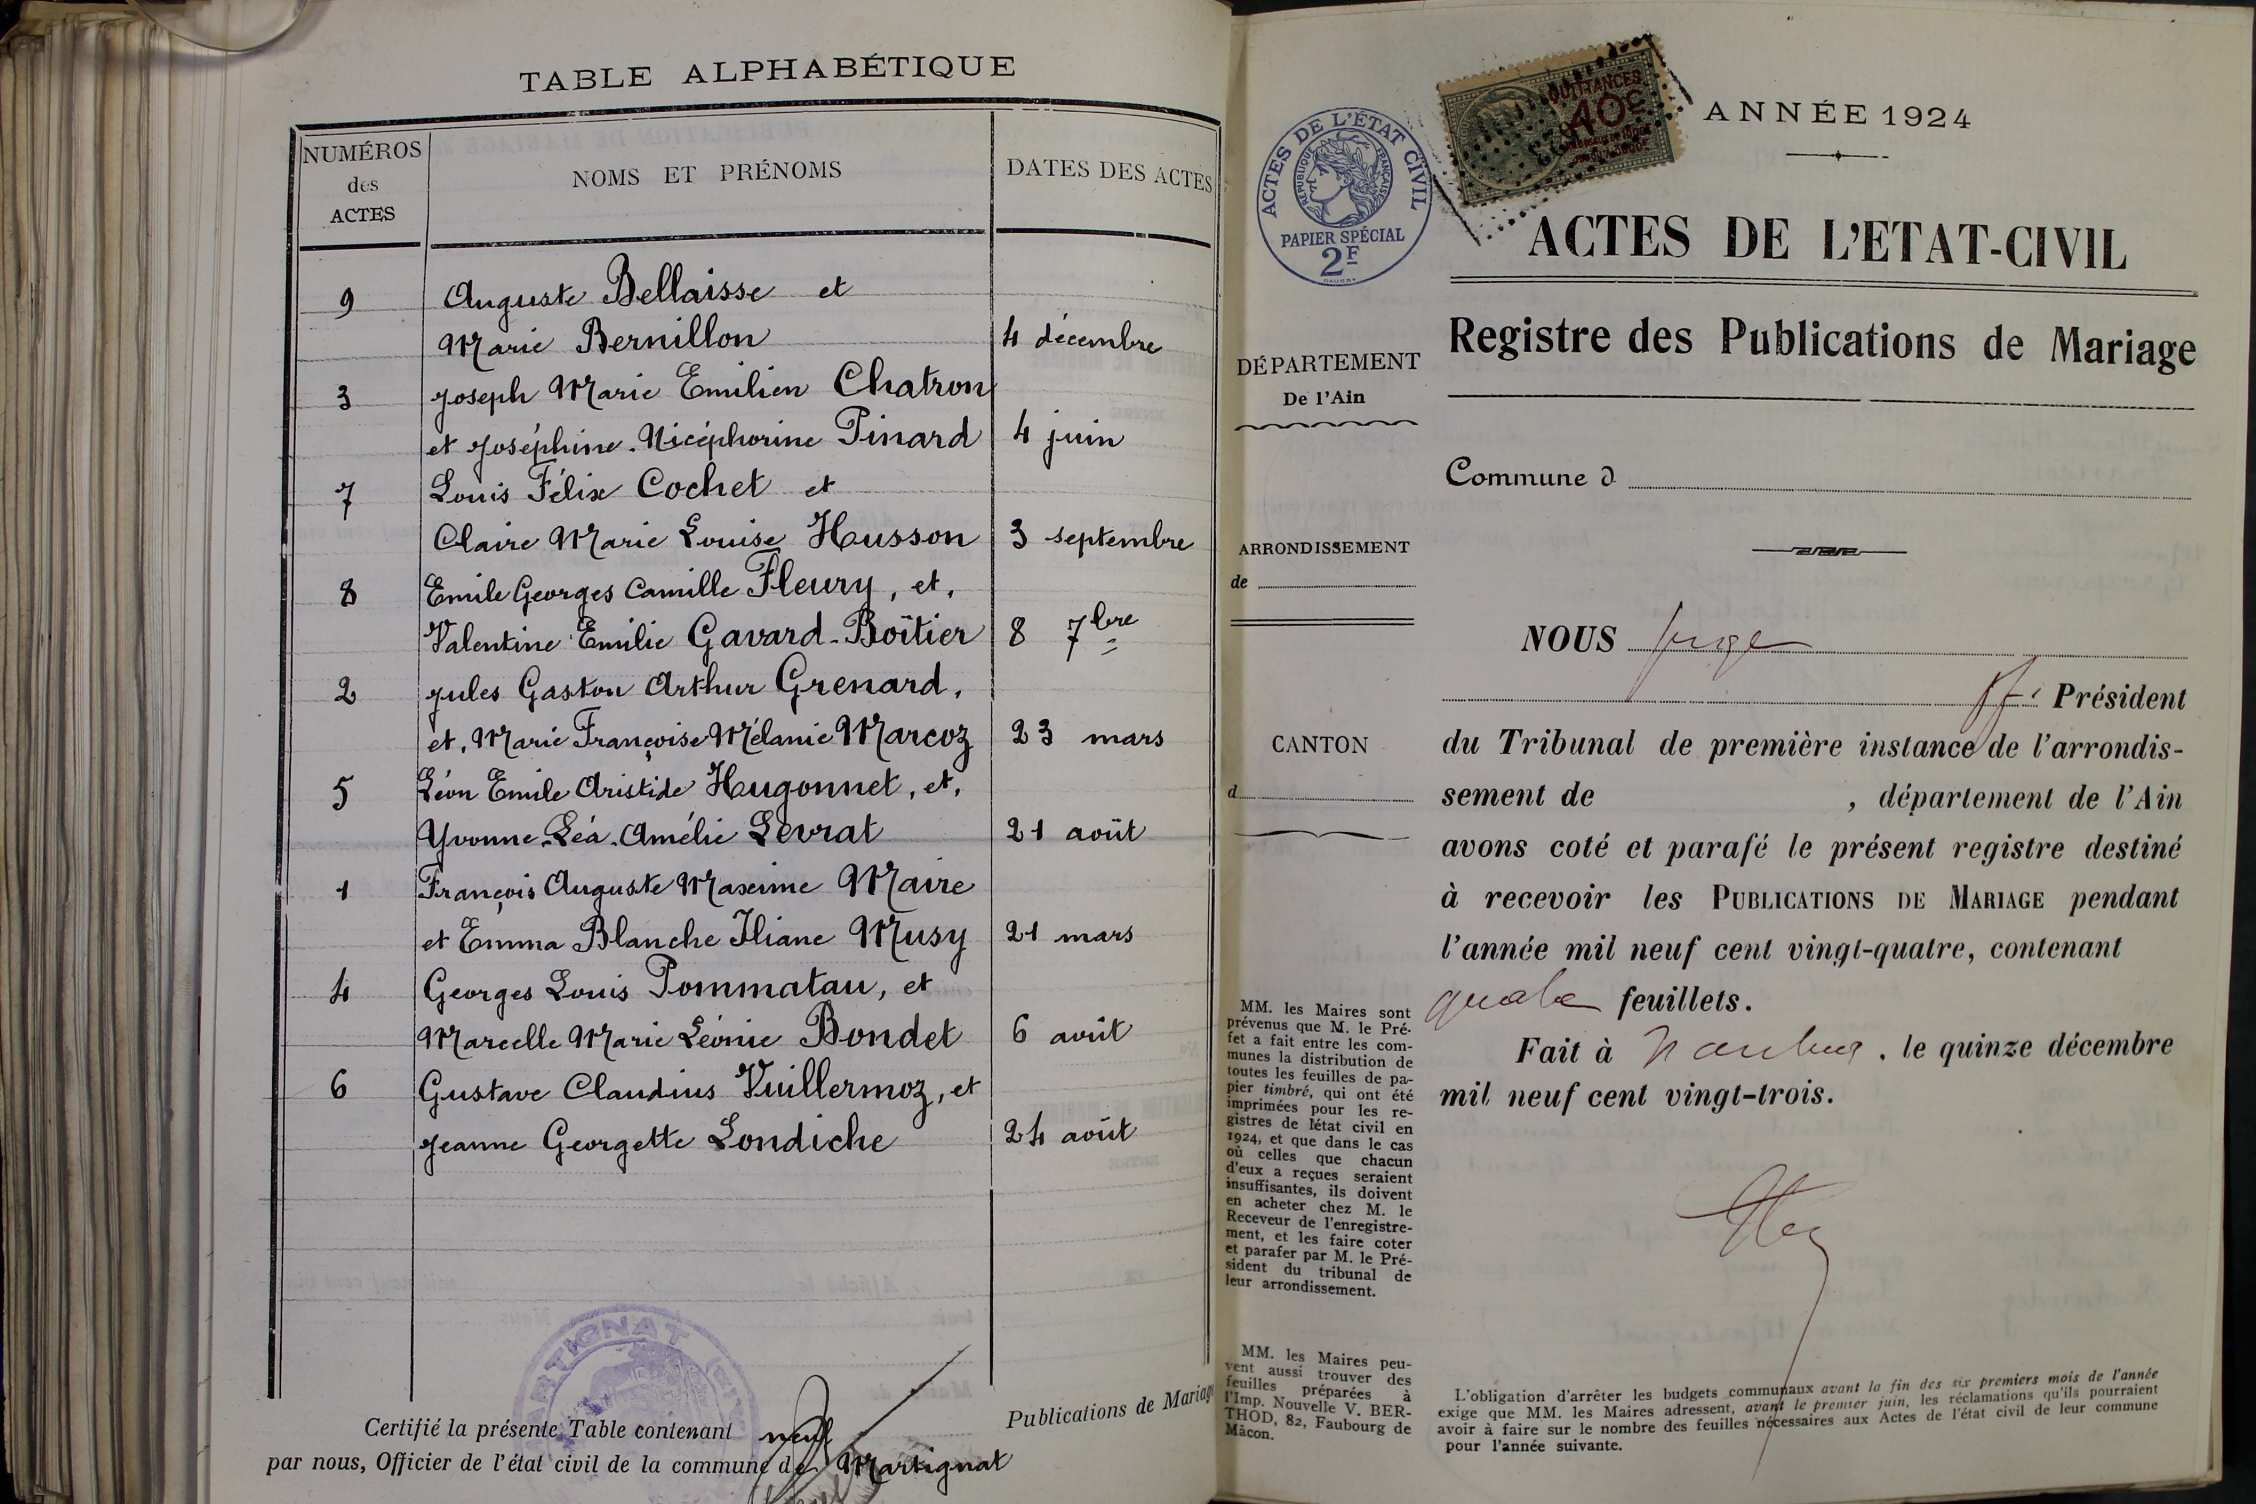 TABLE ALPHABÉTIQUE
NUMÉROS
des
ACTES
NOMS ET PRÉNOMS
DATES DES ACTES
9 Auguste Bellaisse et
Marie Bernillon 4 décembre
3 Joseph Marie Emilien Chatron
et Joséphine. Nicéphorine Pinard 4 juin
7 Louis Félix Cochet et
Claire Marie Louise Husson 3 septembre
8 Emile Georges Camille Fleury, et,
Valentine Emilie Gavard-Boîtier 8 7bre
2 Jules Gaston Arthur Grenard,
et, Marie Françoise Mélanie Marcoz 23 mars
5 Léon Emile Aristide Hugonnet, et,
Yvonne Léa Amélie Levrat 21 août
1 François Auguste Maxime Maire
et Emma Blanche Iliane Musy 21 mars
4 Georges Louis Pommatau, et
Marcelle Marie Léonie Bondet 6 août
6 Gustave Claudius Vuillermoz, et
Jeanne Georgette Londiche 24 août
Certifié la présente Table contenant neuf Publications de Mariage
par nous, Officier de l'état civil de la commune de Martignat
ACTES DE L'ÉTAT CIVIL
RÉPUBLIQUE FRANÇAISE
PAPIER SPÉCIAL
2F
QUITTANCES
40c
ANNÉE 1924
ACTES DE L'ETAT-CIVIL
Registre des Publications de Mariage
DÉPARTEMENT
De l'Ain
Commune d
ARRONDISSEMENT
de
CANTON
d
NOUS Juge
Président
du Tribunal de première instance de l'arrondis-
sement de , département de l'Ain
avons coté et parafé le présent registre destiné
à recevoir les PUBLICATIONS DE MARIAGE pendant
l'année mil neuf cent vingt-quatre, contenant
quatre feuillets.
Fait à Nantua, le quinze décembre
mil neuf cent vingt-trois.
MM. les Maires sont
prévenus que M. le Pré-
fet a fait entre les com-
munes la distribution de
toutes les feuilles de pa-
pier timbré, qui ont été
imprimées pour les re-
gistres de létat civil en
1924, et que dans le cas
où celles que chacun
d'eux a reçues seraient
insuffisantes, ils doivent
en acheter chez M. le
Receveur de l'enregistre-
ment, et les faire coter
et parafer par M. le Pré-
sident du tribunal de
leur arrondissement.
MM. les Maires peu-
vent aussi trouver des
feuilles préparées à
l'Imp. Nouvelle V. BER-
THOD, 82, Faubourg de
Mâcon.
L'obligation d'arrêter les budgets communaux avant la fin des six premiers mois de l'année
exige que MM. les Maires adressent, avant le premier juin, les réclamations qu'ils pourraient
avoir à faire sur le nombre des feuilles nécessaires aux Actes de l'état civil de leur commune
pour l'année suivante.